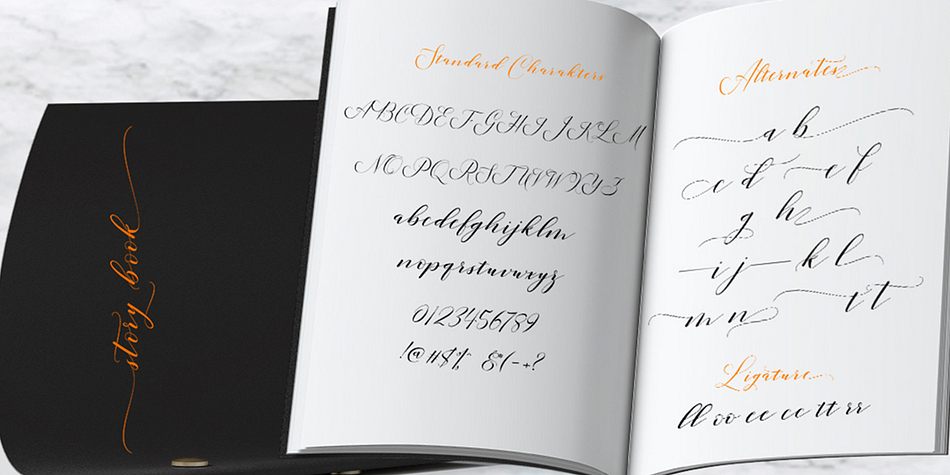 story book
Standard Charakters
ABCDEFGHIJKLM
NOPQRSTUVWXYZ
abcdefghijklm
nopqrstuvwxyz
0123456789
!@#$% &(-+?
Alternates
a b
c d e f
g h
i j k l
m n t t
Ligature
ll oo ee cc tt rr